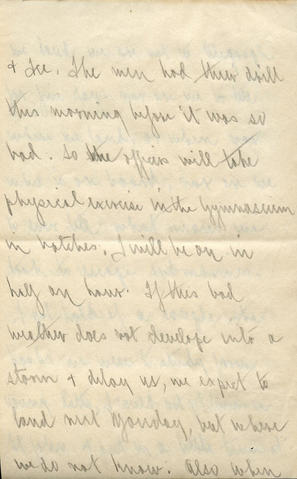 & Ice. The men had their drill
this morning before it was so
bad. So the officers will take
physical exercise in the gymnasium
in batches. I will be on in
half an hour. If this bad
weather does not develope into a
storm & delay us, we expect to
land next Monday, but where
we do not know. Also when